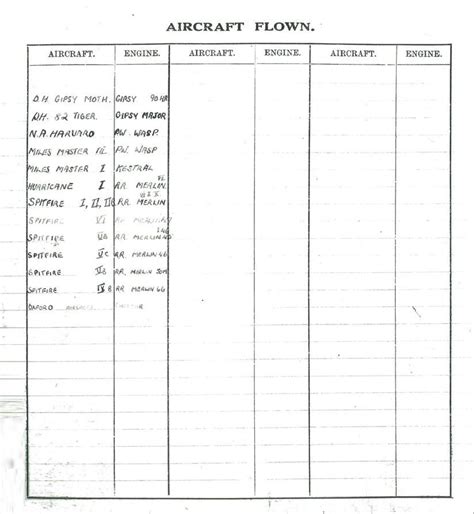 AIRCRAFT FLOWN.
AIRCRAFT. ENGINE. AIRCRAFT. ENGINE. AIRCRAFT. ENGINE.
D.H. GIPSY MOTH. GIPSY 90HP
D.H. 82 TIGER. GIPSY MAJOR
N.A. HARVARD P.W. WASP.
MILES MASTER III P.W. WASP
MILES MASTER I KESTRAL
HURRICANE I RR. MERLIN III
SPITFIRE I, II, IIB RR. MERLIN
SPITFIRE VI RR MERLIN
SPITFIRE VB RR. MERLIN
SPITFIRE VC RR. MERLIN 46
SPITFIRE VB RR. MERLIN 50M
SPITFIRE IX B RR MERLIN 66
OXFORD